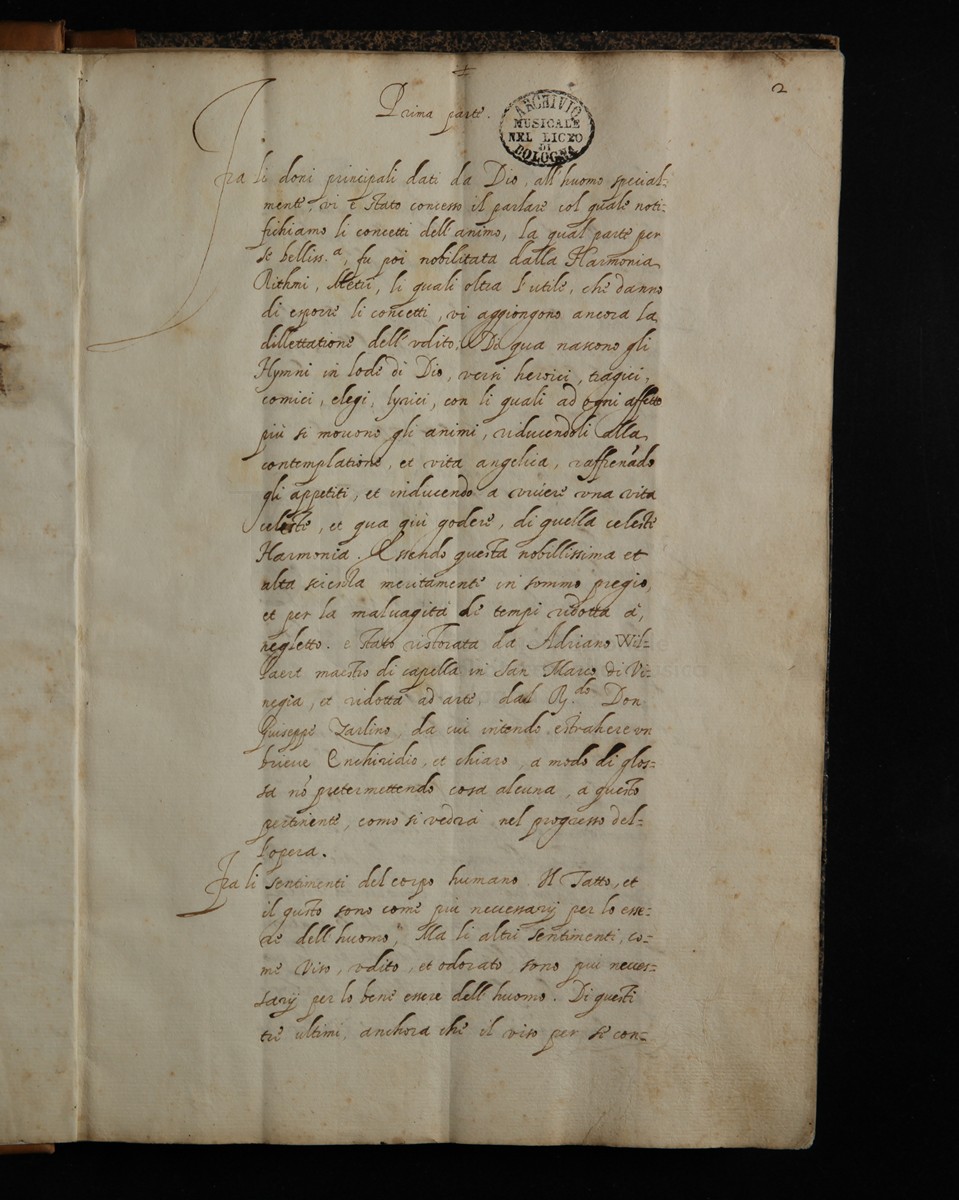 2
Prima parte.
ARCHIVIO
MUSICALE
NEL LICEO
DI
BOLOGNA
Fra li doni principali dati da Dio, all'huomo special:
mente, vi è stato concesso il parlare col quale noti:
fichiamo li concetti dell'animo, la qual parte per
se belliss.a, fu poi nobilitata dalla Harmonia
Rithmi, Metri, li quali oltra l'utile, che danno
di esporre li concetti, vi aggiongono ancora la
dillettatione dell'udito; Di qua nascono gli
Hymni in lode di Dio, versi heroici, tragici,
comici, elegi, lyrici, con li quali ad ogni affetto
più si movono gli animi, riducendoli alla
contemplatione, et vita angelica, raffrenãdo
gli appetiti, et inducendo a vivere una vita
celeste, et qua giù godere, di quella celeste
Harmonia. Essendo questa nobillissima et
alta scienza meritamente in sommo pregio,
et per la malvagità di tempi ridotta à,
negletto. è stata ristorata da Adriano Wil=
laert maestro di capella in San Marco di Vi:
negia, et ridotta ad arte, dal R.do Don
Guiseppe Zarlino, da cui intendo estrahere un
brieve Enchiridio, et chiaro, a modo di glos=
sa nõ pretermettendo cosa alcuna, a questo
pertinente, como si vedrà nel progresso del=
l'opera.
Fra li sentimenti del corpo humano Il Tatto, et
il gusto sono come più necessarij per lo esse:
re dell'huomo, Ma li altri sentimenti, co=
me Viso, udito, et odorato sono più neces=
sarij per lo bene essere dell'huomo. Di questi
tre ultimi, anchora che il viso per se con=